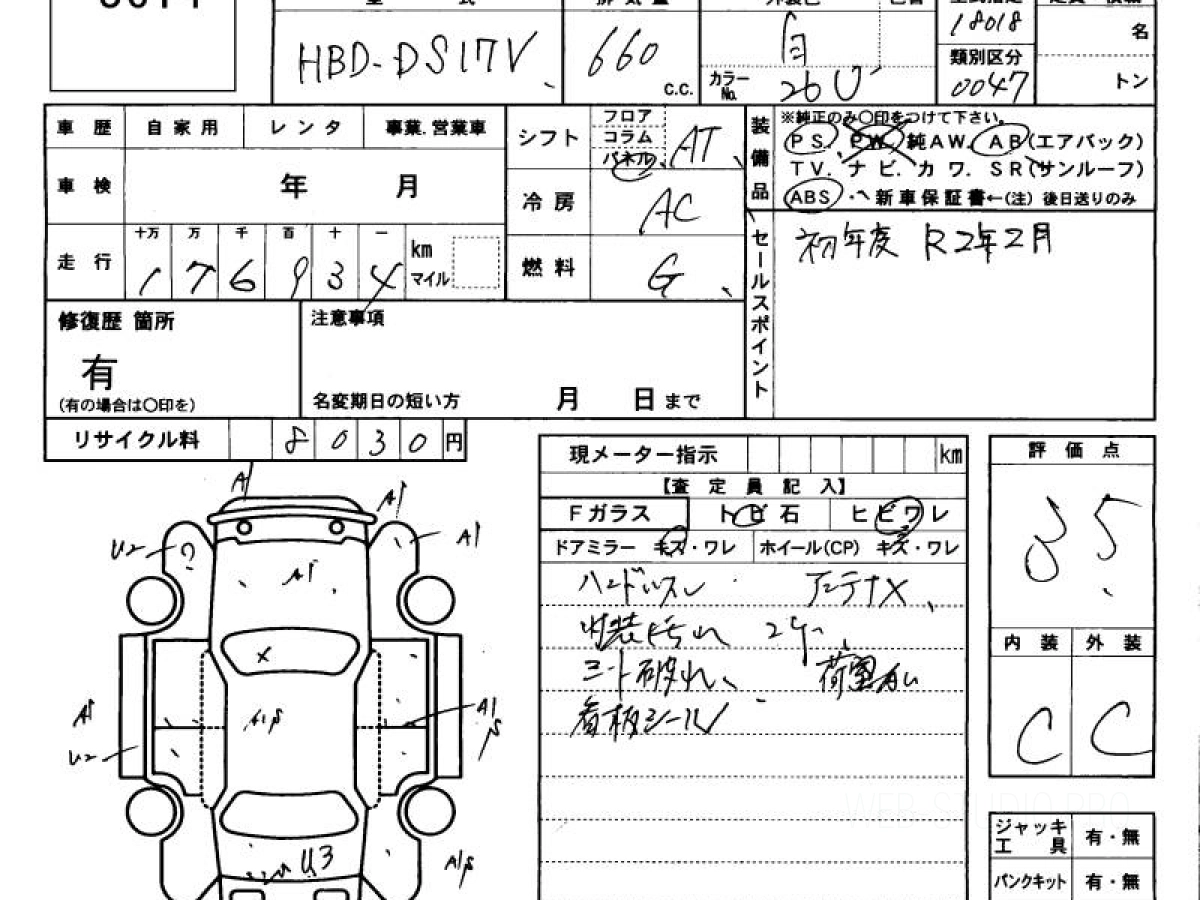 HBD-DS17V 660 C.C. 白 カラーNo. 26U 18018 類別区分 0047 名 トン
車歴 自家用 レンタ 事業.営業車
車検 年 月
走行 十万 万 千 百 十 一 km マイル
1 7 6 9 3 4
シフト フロア コラム パネル AT
冷房 AC
燃料 G
装備品
※純正のみ〇印をつけて下さい。
PS. PW. 純AW. AB(エアバック)
TV. ナビ. カワ. SR(サンルーフ)
ABS ・ヘ 新車保証書←(注) 後日送りのみ
セールスポイント
初年度 R2年2月
修復歴 箇所
有
(有の場合は〇印を)
注意事項
名変期日の短い方 月 日まで
リサイクル料 8 0 3 0 円
現メーター指示 km
【査定員記入】
Fガラス トビ石 ヒビワレ
ドアミラー キズ・ワレ ホイール(CP) キズ・ワレ
ハンドルスレ アンテナX
内装汚れ
シート破れ 荷室
看板シール
評価点
3 5
内装 外装
C C
ジャッキ工具 有・無
パンクキット 有・無
A1
A1
U2
A1
A1
X
A1
U2
A1S
A1
S
U3
A1S